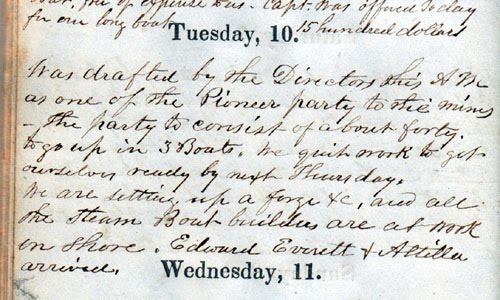 boat, free of expense to us. Capt. was offered to day
for our long boat 15 hundred dollars
Tuesday, 10.
Was drafted by the Directors this A M
as one of the Pioneer party to the mines
- The party to consist of about forty.
to go up in 3 Boats. We quit work to get
ourselves ready by next Thursday.
We are setting up a forge &c, and all
the Steam Boat builders are at work
on shore. Edward Everett & Attilla
arrived.
Wednesday, 11.